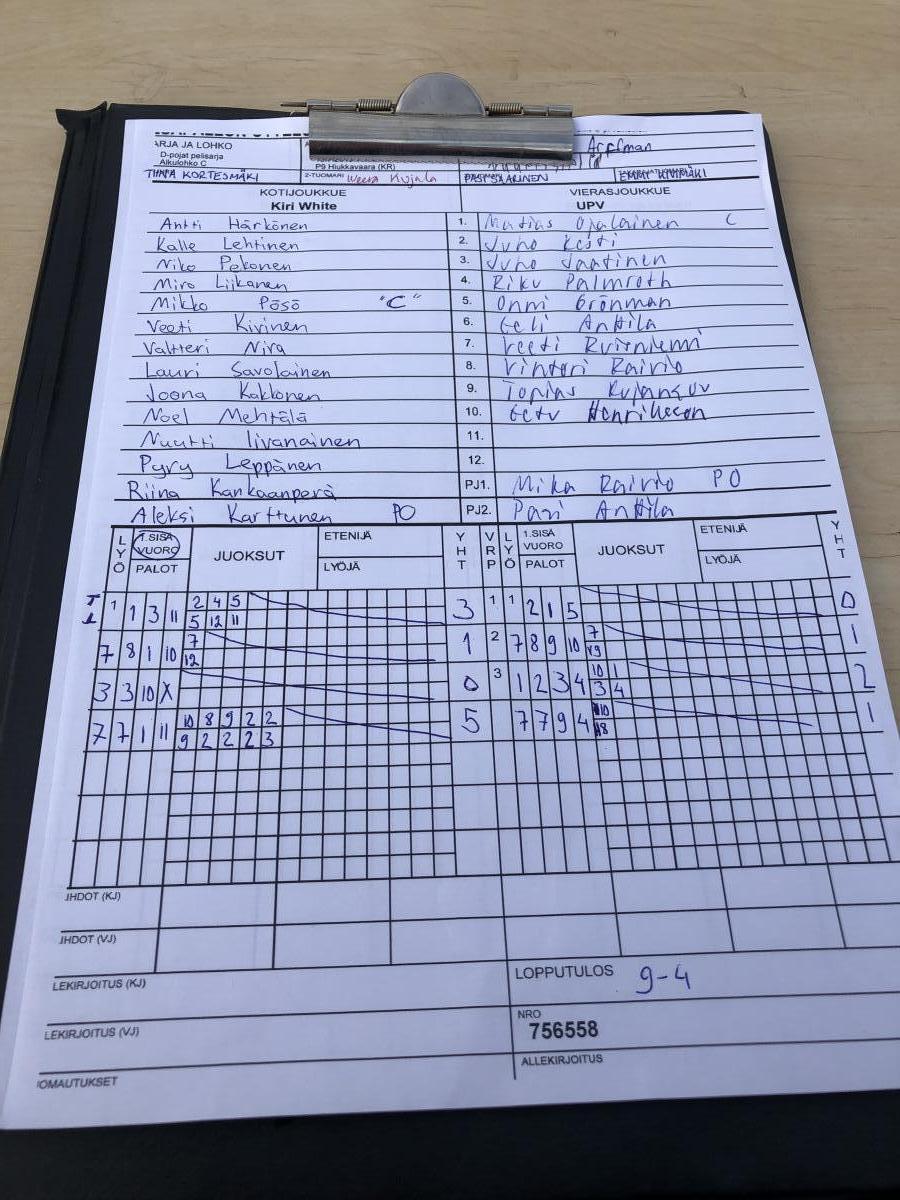 ARJA JA LOHKO
D-pojat pelisarja
Alkulohko C
P9 Hiukkavaara (KR)
Arffman
TIINA KORTESMÄKI 2-TUOMARI Weera Kujala PASI SAARINEN KIVIMÄKI
KOTIJOUKKUE VIERASJOUKKUE
Kiri White UPV
Antti Härkönen 1. Matias Ojalainen C
Kalle Lehtinen 2. Juho Kesti
Niko Pekonen 3. Juho Jaatinen
Miro Liikanen 4. Riku Palmroth
Mikko Pösö "C" 5. Onni Grönman
Veeti Kivinen 6. Eeli Anttila
Valtteri Niva 7. Veeti
Lauri Savolainen 8. Vintori Rairio
Joona Kakkonen 9. Topias
Noel Mehtälä 10. Eetu
Nuutti Iivanainen 11.
Pyry Leppänen 12.
Riina Kankaanperä PJ1. Mika Rairio PO
Aleksi Karttunen PO PJ2. Pasi Anttila
LYÖ 1.SISÄ VUORO PALOT JUOKSUT ETENIJÄ LYÖJÄ YHT VRP LYÖ 1.SISÄ VUORO PALOT JUOKSUT ETENIJÄ LYÖJÄ YHT
1 1 3 11 2 4 5 3 1 1 2 1 5 0
5 12 11
7 8 1 10 7 1 2 7 8 9 10 7 1
12 9
3 3 10 X 0 3 1 2 3 4 10 1 2
3 4
7 7 1 11 10 8 9 2 2 5 7 7 9 4 10 1
9 2 2 2 3 8
JHDOT (KJ)
JHDOT (VJ)
LEKIRJOITUS (KJ) LOPPUTULOS 9-4
LEKIRJOITUS (VJ) NRO
756558
OMAUTUKSET ALLEKIRJOITUS